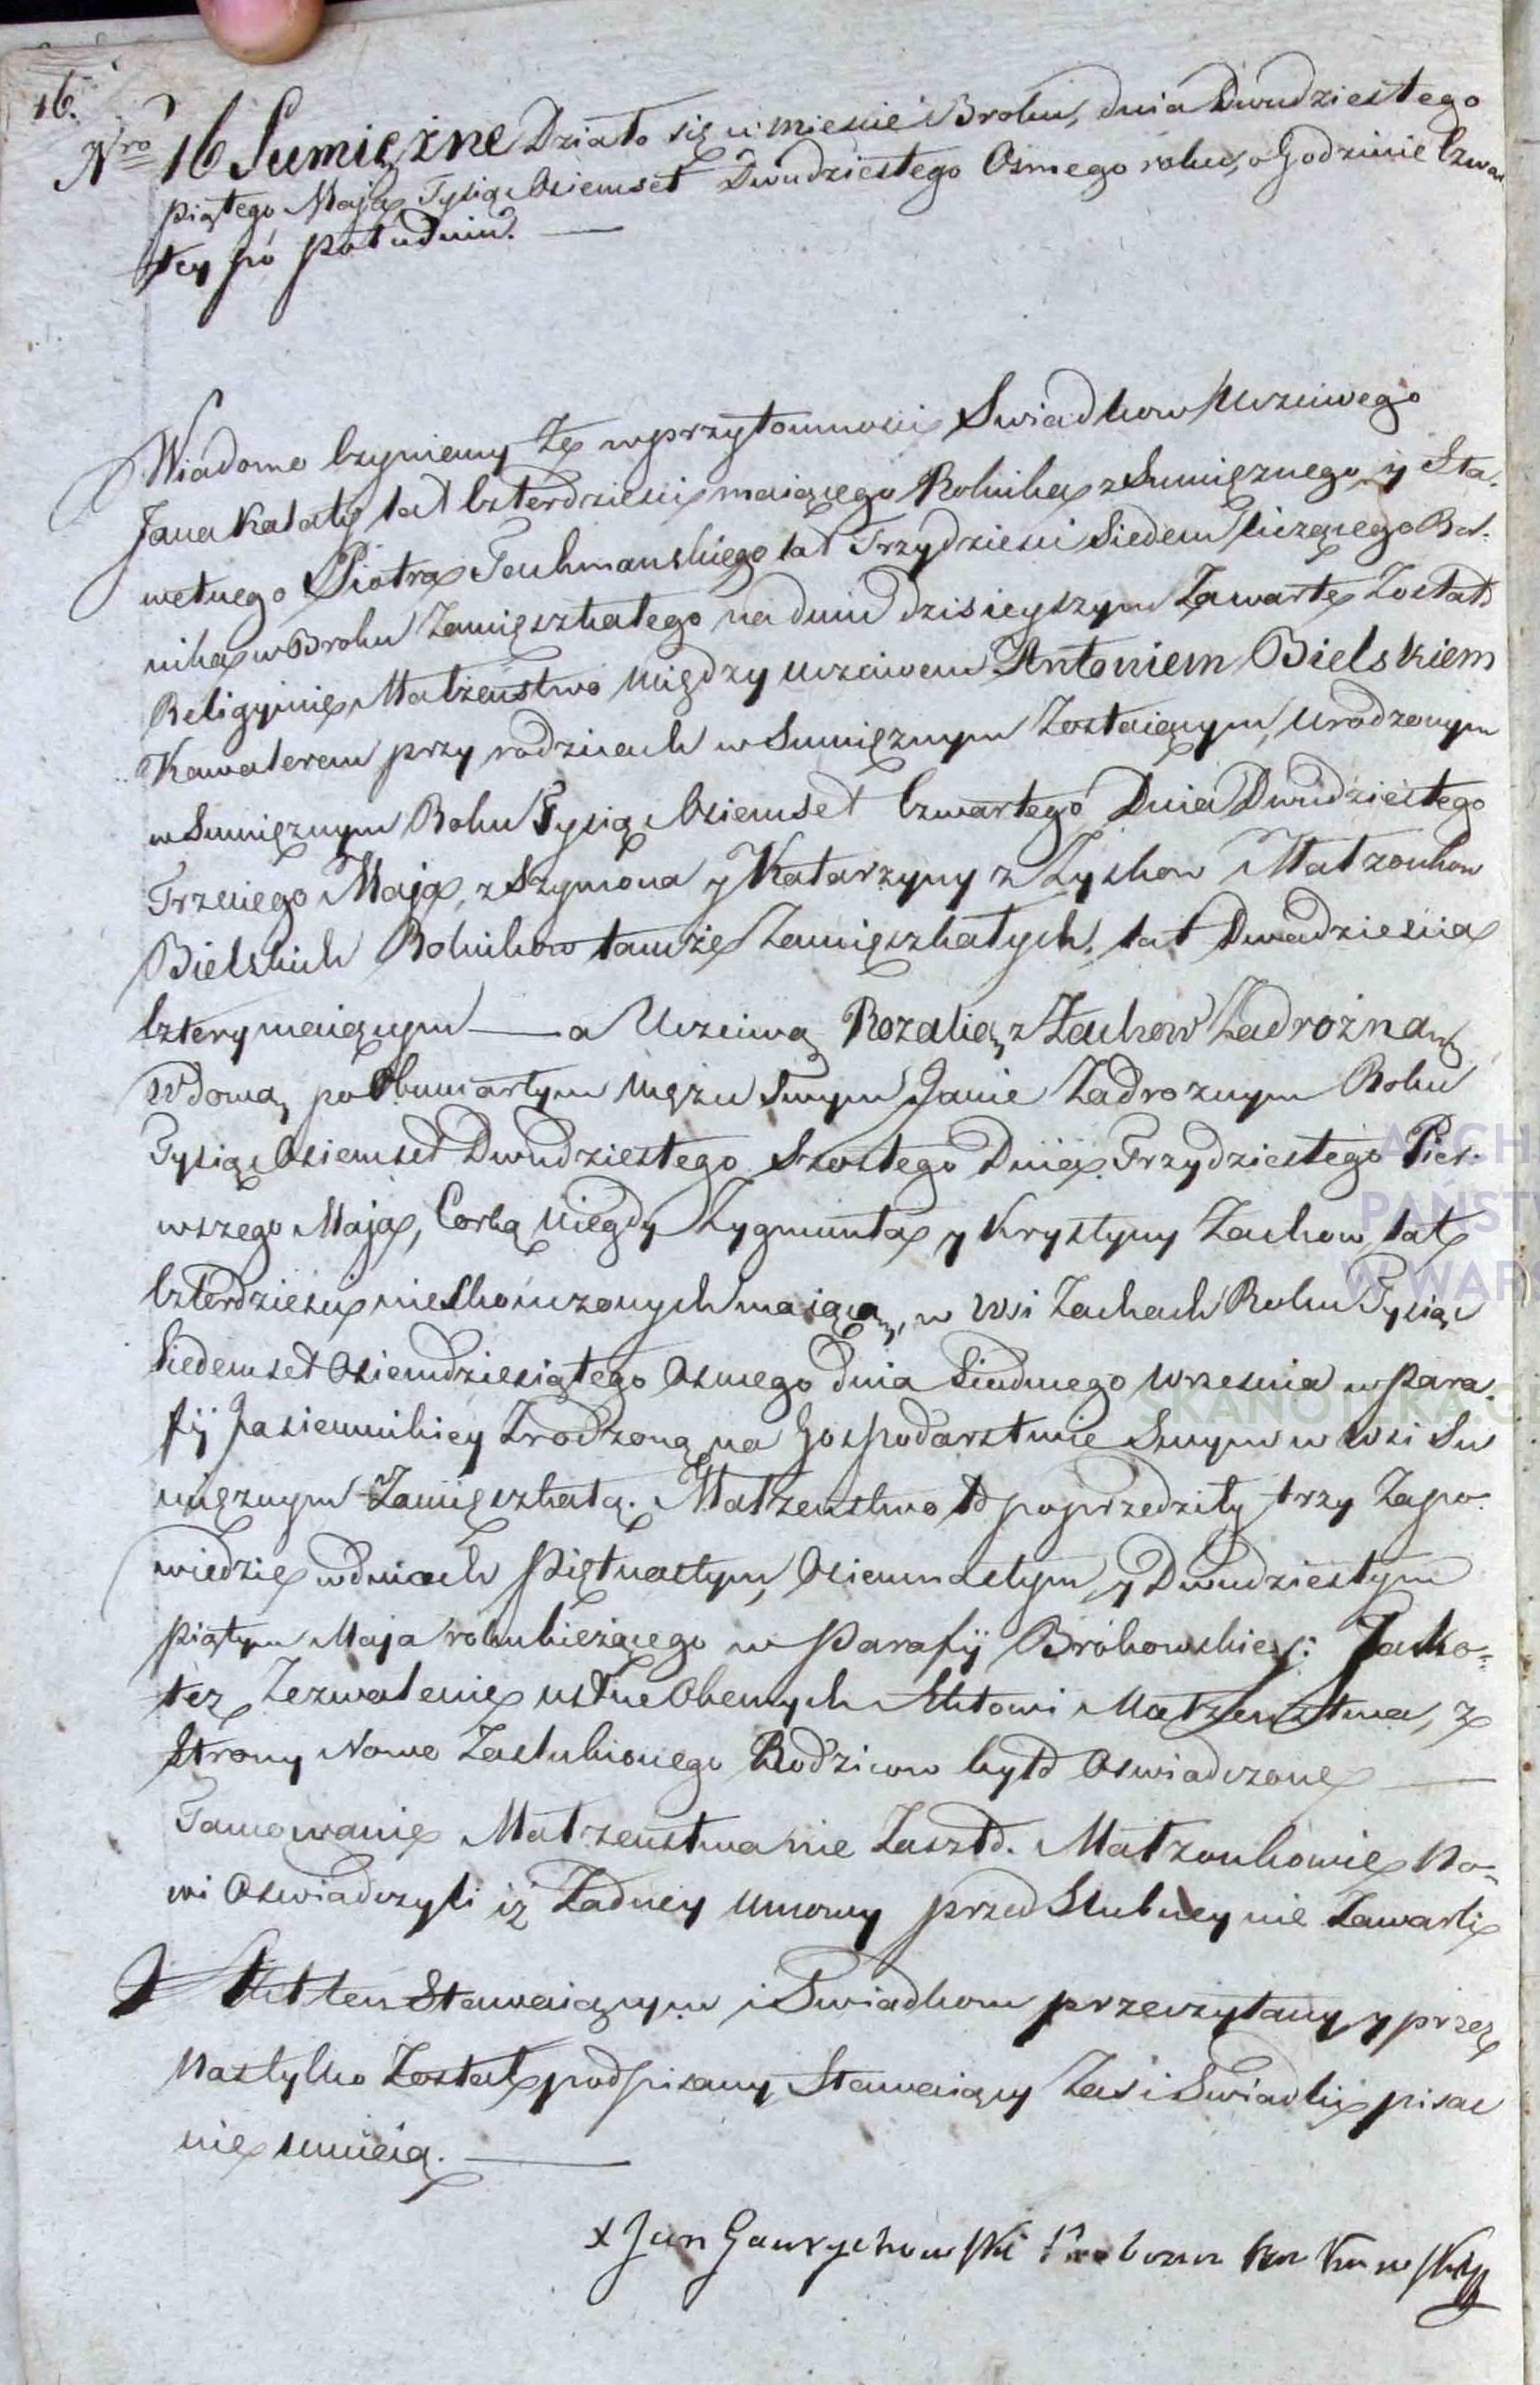 16.
Nro 16 Sumiężne Działo się w mieście Broku, dnia Dwudziestego
piątego Maja Tysiąc Osiemset Dwudziestego Osmego roku, o Godzinie Czwar
tey po południu. —
Wiadomo Czyniemy że w przytomności Swiadkow Uczciwego
Jana Kalaty lat Czterdzieści maiącego Rolnika z Sumiężnego, y Sła-
wetnego Piotra Tuchmanskiego lat Trzydzieści Siedem liczącego Rol-
nika w Broku Zamięszkałego na dniu dzisieyszym Zawarte Zostało
Religijnie Małżeństwo między uczciwem Antoniem Bielskiem
Kawalerem przy rodzicach w Sumiężnym Zostaiącym, urodzonym
w Sumiężnym Roku Tysiąc Osiemset Czwartego Dnia Dwudziestego
Trzeciego Maja, z Szymona y Katarzyny z Zyskow Małżonkow
Bielskich Rolnikow tamże Zamięszkałych, lat Dwadzieścia
Cztery maiącym — a Uczciwą Rozalią z Żachow Zadrożną
Wdową po Obumarłym mężu Swym Janie Zadrożnym Roku
Tysiąc Osiemset Dwudziestego Szostego Dnia Trzydziestego Pier-
wszego Maja, Corką niegdy Zygmunta y Krystyny Żachow, lat
Czterdzieści nieskończonych maiącą, w Wsi Żachach Roku Tysiąc
Siedemset Osiemdziesiątego Osmego dnia Siudmego Września w Para-
fij Jasiennickiey Zrodzoną na Gospodarstwie Swym w Wsi Su
miężnym Zamięszkałą. Małżeństwo to poprzedziły trzy Zapo-
wiedzie w dniach Piętnastym, Osiemnastym, y Dwudziestym
piątym Maja roku bieżącego w Parafij Brokowskiey: Jako-
też Zezwolenie ustne Obecnych Aktowi Małżeństwa, z
Strony Nowo Zaslubionego Rodzicow było Oswiadczone —
Tamowanie Małżeństwa nie Zaszło. Małżonkowie No-
wi Oswiadczyli iż Żadney umowy przed Slubney nie Zawarli
Akt ten Stawaiącym i Swiadkom przeczytany y przez
Nas tylko Został podpisany Stawaiący Zas i Swiadki pisac
nie umieią. —
x Jan Gawrychowski Proboszcz
ARCHI
PAŃSTW
W WARS
SKANOTEKA.G